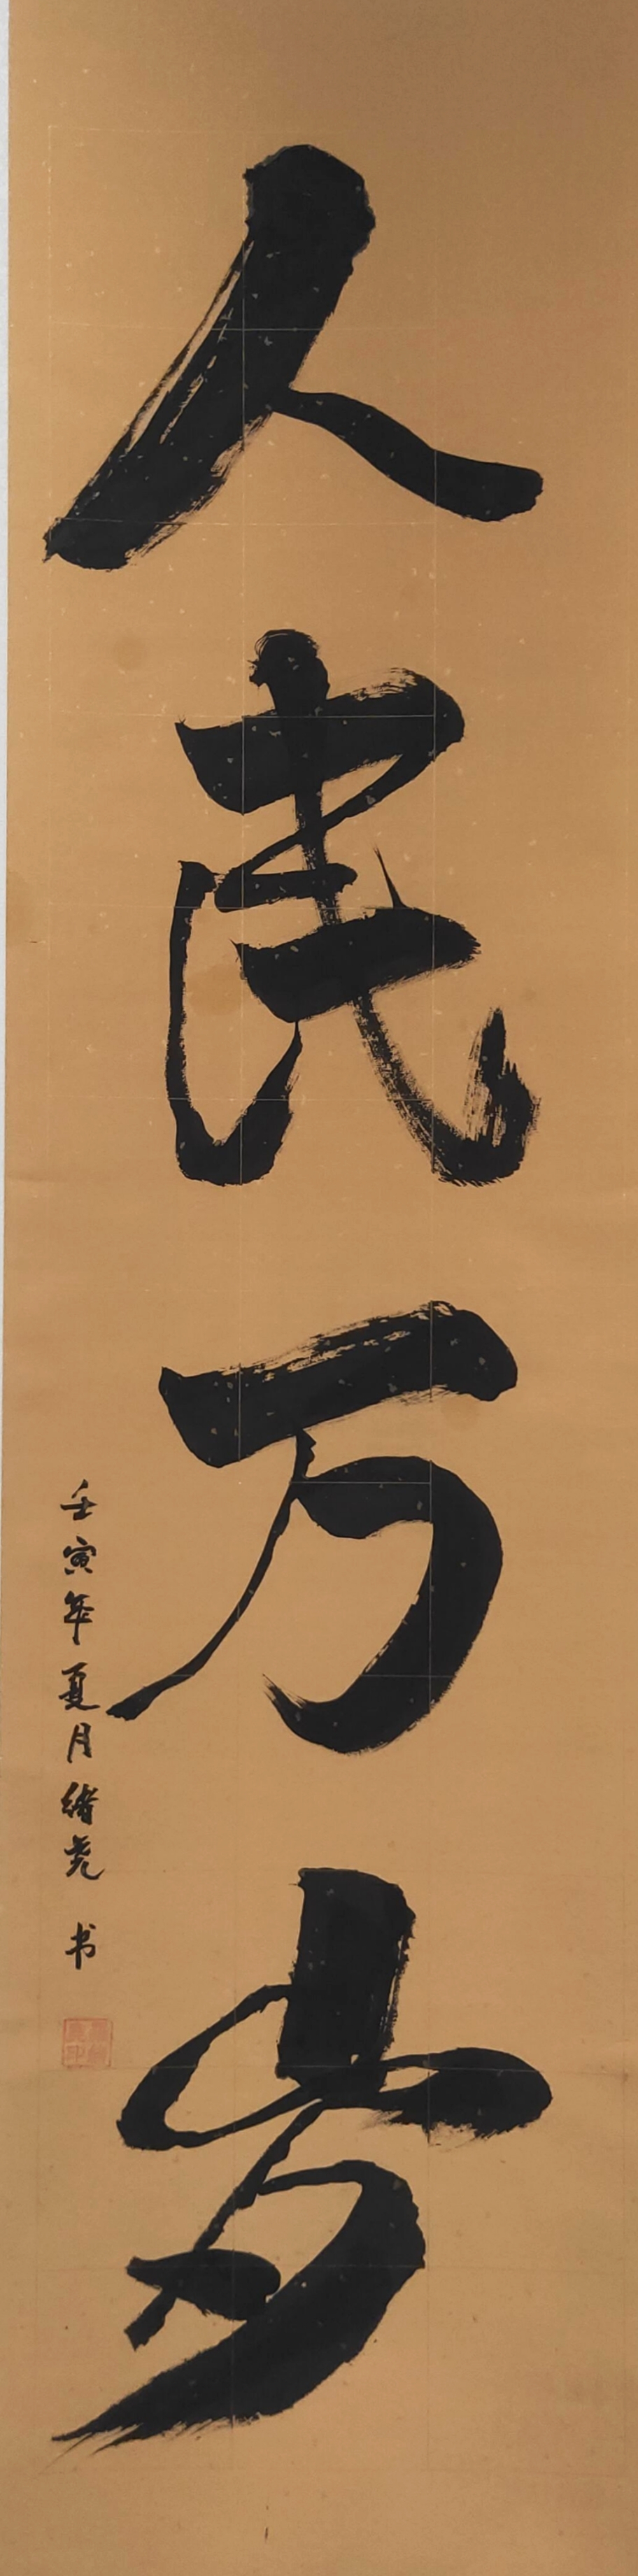 人民万岁
壬寅年夏月绪尧 书